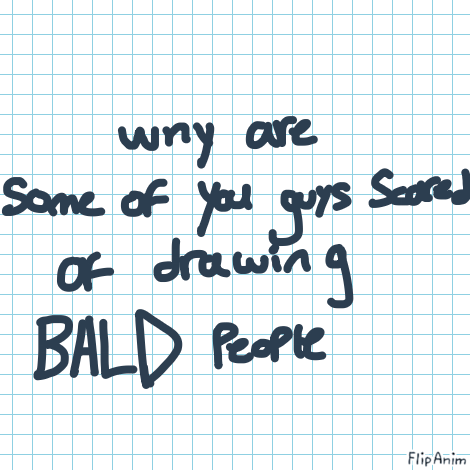 why are
Some of you guys Scared
of drawing
BALD People
FlipAnim